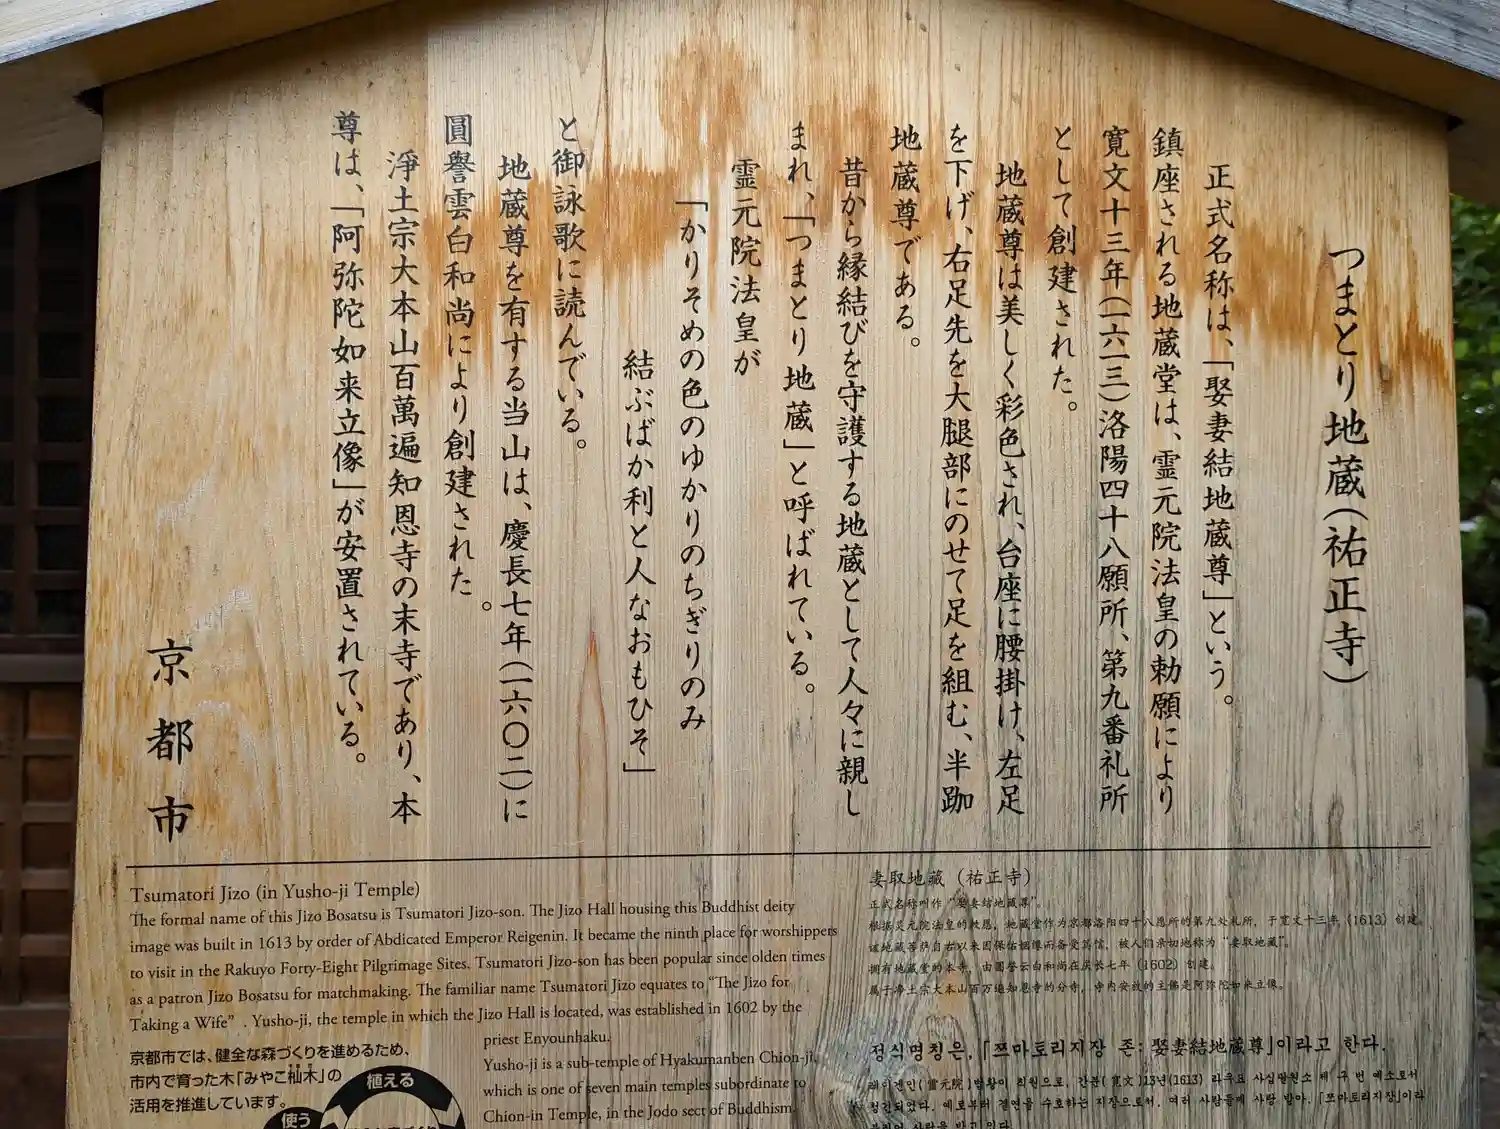 つまとり地蔵(祐正寺)
正式名称は、「娶妻結地蔵尊」という。
鎮座される地蔵堂は、霊元院法皇の勅願により
寛文十三年(一六一三)洛陽四十八願所、第九番礼所
として創建された。
地蔵尊は美しく彩色され、台座に腰掛け、左足
を下げ、右足先を大腿部にのせて足を組む、半跏
地蔵尊である。
昔から縁結びを守護する地蔵として人々に親し
まれ、「つまとり地蔵」と呼ばれている。
霊元院法皇が
「かりそめの色のゆかりのちぎりのみ
結ぶばか利と人なおもひそ」
と御詠歌に読んでいる。
地蔵尊を有する当山は、慶長七年(一六〇二)に
圓譽雲白和尚により創建された。
淨土宗大本山百萬遍知恩寺の末寺であり、本
尊は、「阿弥陀如来立像」が安置されている。
京都市
Tsumatori Jizo (in Yusho-ji Temple)
The formal name of this Jizo Bosatsu is Tsumatori Jizo-son. The Jizo Hall housing this Buddhist deity
image was built in 1613 by order of Abdicated Emperor Reigenin. It became the ninth place for worshippers
to visit in the Rakuyo Forty-Eight Pilgrimage Sites. Tsumatori Jizo-son has been popular since olden times
as a patron Jizo Bosatsu for matchmaking. The familiar name Tsumatori Jizo equates to “The Jizo for
Taking a Wife” . Yusho-ji, the temple in which the Jizo Hall is located, was established in 1602 by the
priest Enyounhaku.
Yusho-ji is a sub-temple of Hyakumanben Chion-ji,
which is one of seven main temples subordinate to
Chion-in Temple, in the Jodo sect of Buddhism.
京都市では、健全な森づくりを進めるため、
市内で育った木「みやこ杣木」の
活用を推進しています。
植える
使う
妻取地藏（祐正寺）
正式名称叫作“娶妻结地藏尊”。
根据灵元院法皇的敕愿，地藏堂作为京都洛阳四十八愿所的第九处札所，于宽文十三年（1613）创建。
该地藏菩萨自古以来因保佑姻缘而备受笃信，被人们亲切地称为“妻取地藏”。
拥有地藏堂的本寺，由圆誉云白和尚在庆长七年（1602）创建。
属于净土宗大本山百万遍知恩寺的分寺，寺内安放的主佛是阿弥陀如来立像。
정식명칭은,「쯔마토리지장 존:娶妻結地蔵尊」이라고 한다.
레이겐인(霊元院)법황이 칙원으로, 간분(寛文)13년(1613) 라쿠요 사십팔원소 제 구 번 예소로서
정진되었다. 예로부터 결연을 수호하는 지장으로서, 여러 사람들께 사랑 받아,「쯔마토리지장」이라